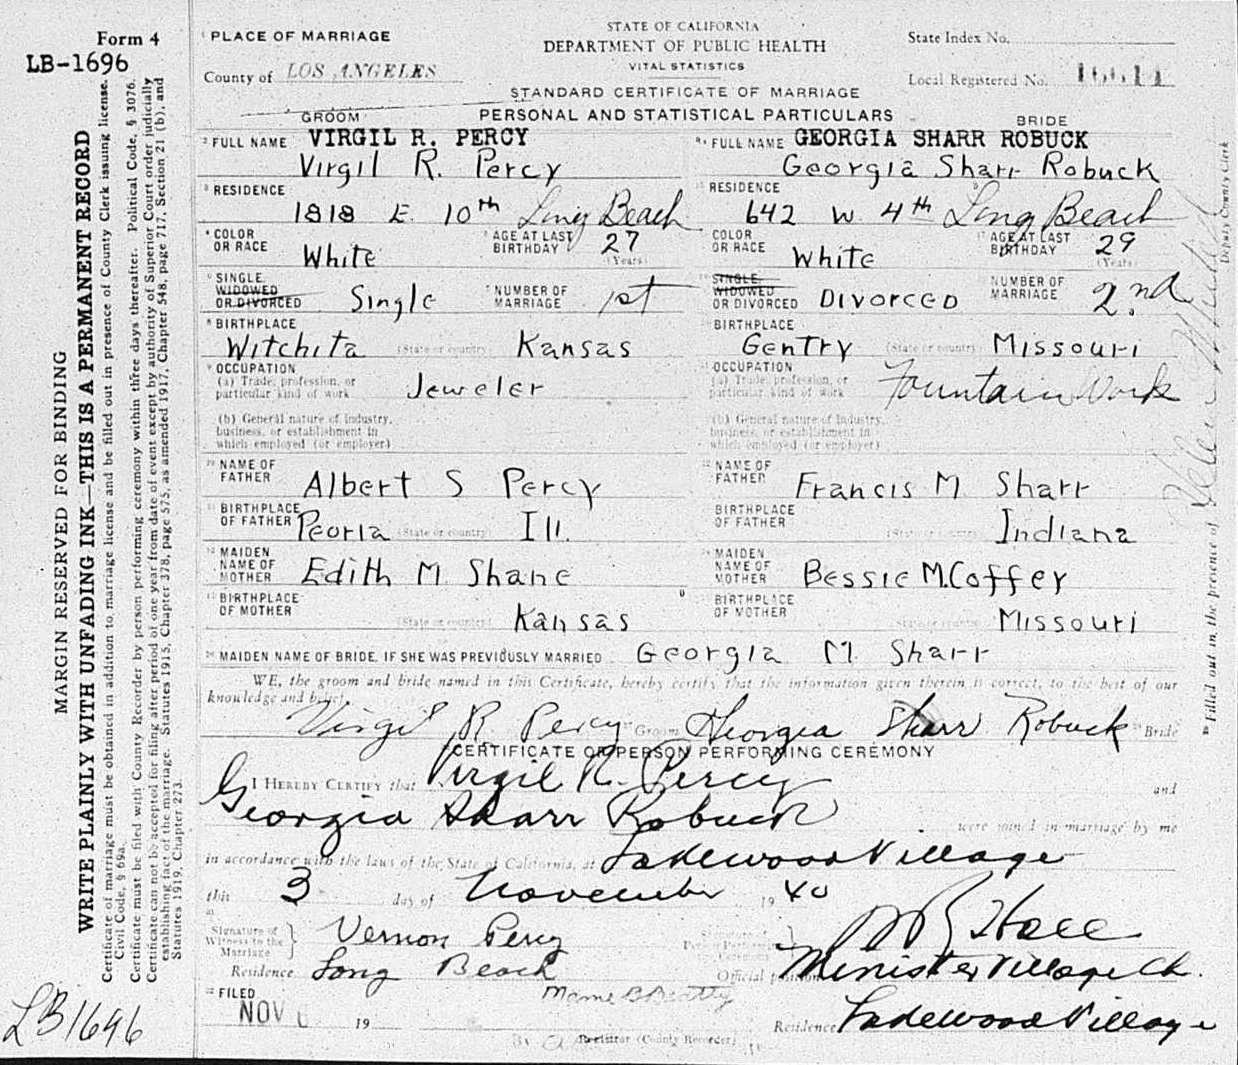 Form 4
LB-1696
PLACE OF MARRIAGE
County of LOS ANGELES
STATE OF CALIFORNIA
DEPARTMENT OF PUBLIC HEALTH
VITAL STATISTICS
STANDARD CERTIFICATE OF MARRIAGE
State Index No.
Local Registered No. 16611
PERSONAL AND STATISTICAL PARTICULARS
GROOM
BRIDE
FULL NAME VIRGIL R. PERCY
Virgil R. Percy
FULL NAME GEORGIA SHARR ROBUCK
Georgia Sharr Robuck
RESIDENCE
1818 E. 10th Long Beach
RESIDENCE
642 W 4th Long Beach
COLOR OR RACE White
AGE AT LAST BIRTHDAY 27 (Years)
COLOR OR RACE White
AGE AT LAST BIRTHDAY 29 (Years)
SINGLE, WIDOWED OR DIVORCED Single
NUMBER OF MARRIAGE 1st
SINGLE, WIDOWED OR DIVORCED Divorced
NUMBER OF MARRIAGE 2nd
BIRTHPLACE
Witchita (State or country) Kansas
BIRTHPLACE
Gentry (State or country) Missouri
OCCUPATION
(a) Trade, profession, or particular kind of work Jeweler
OCCUPATION
(a) Trade, profession, or particular kind of work Fountain Work
(b) General nature of Industry, business, or establishment in which employed (or employer)
(b) General nature of Industry, business, or establishment in which employed (or employer)
NAME OF FATHER Albert S Percy
NAME OF FATHER Francis M Sharr
BIRTHPLACE OF FATHER Peoria (State or country) Ill.
BIRTHPLACE OF FATHER (State or country) Indiana
MAIDEN NAME OF MOTHER Edith M Shane
MAIDEN NAME OF MOTHER Bessie M. Coffey
BIRTHPLACE OF MOTHER (State or country) Kansas
BIRTHPLACE OF MOTHER (State or country) Missouri
MAIDEN NAME OF BRIDE, IF SHE WAS PREVIOUSLY MARRIED Georgia M. Sharr
WE, the groom and bride named in this Certificate, hereby certify that the information given therein is correct, to the best of our
knowledge and belief.
Virgil R Percy Groom Georgia Sharr Robuck Bride
CERTIFICATE OF PERSON PERFORMING CEREMONY
I HEREBY CERTIFY that Virgil R. Percy and
Georgia Sharr Robuck were joined in marriage by me
in accordance with the laws of the State of California, at Lakewood Village
this 3 day of November 1940
Signature of Witness to the Marriage } Vernon Percy
Residence Long Beach
Official position Minister Village Ch.
Residence Lakewood Village
FILED
NOV 6 19
Mame B Beatty
Registrar (County Recorder)
LB1696
MARGIN RESERVED FOR BINDING
WRITE PLAINLY WITH UNFADING INK—THIS IS A PERMANENT RECORD
Certificate of marriage must be obtained in addition to marriage license and be filled out in presence of County Clerk issuing license.
Civil Code, § 69a.
Certificate must be filed with County Recorder by person performing ceremony within three days thereafter. Political Code, § 3076.
Certificate can not be accepted for filing after period of one year from date of event except by authority of Superior Court order judicially
establishing fact of the marriage. Statutes 1915, Chapter 378, page 575, as amended 1917, Chapter 548, page 717, Section 21 (b), and
Statutes 1919, Chapter 273.
Filled out in the presence of Helen
Deputy County Clerk